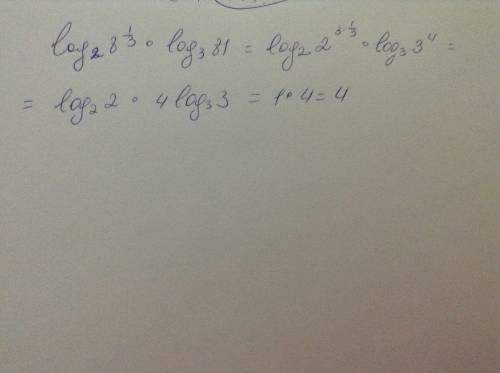 log₂ 8^{1/3} · log₃ 81 = log₂ 2^{3·1/3} · log₃ 3⁴ =
= log₂ 2 · 4 log₃ 3 = 1 · 4 = 4